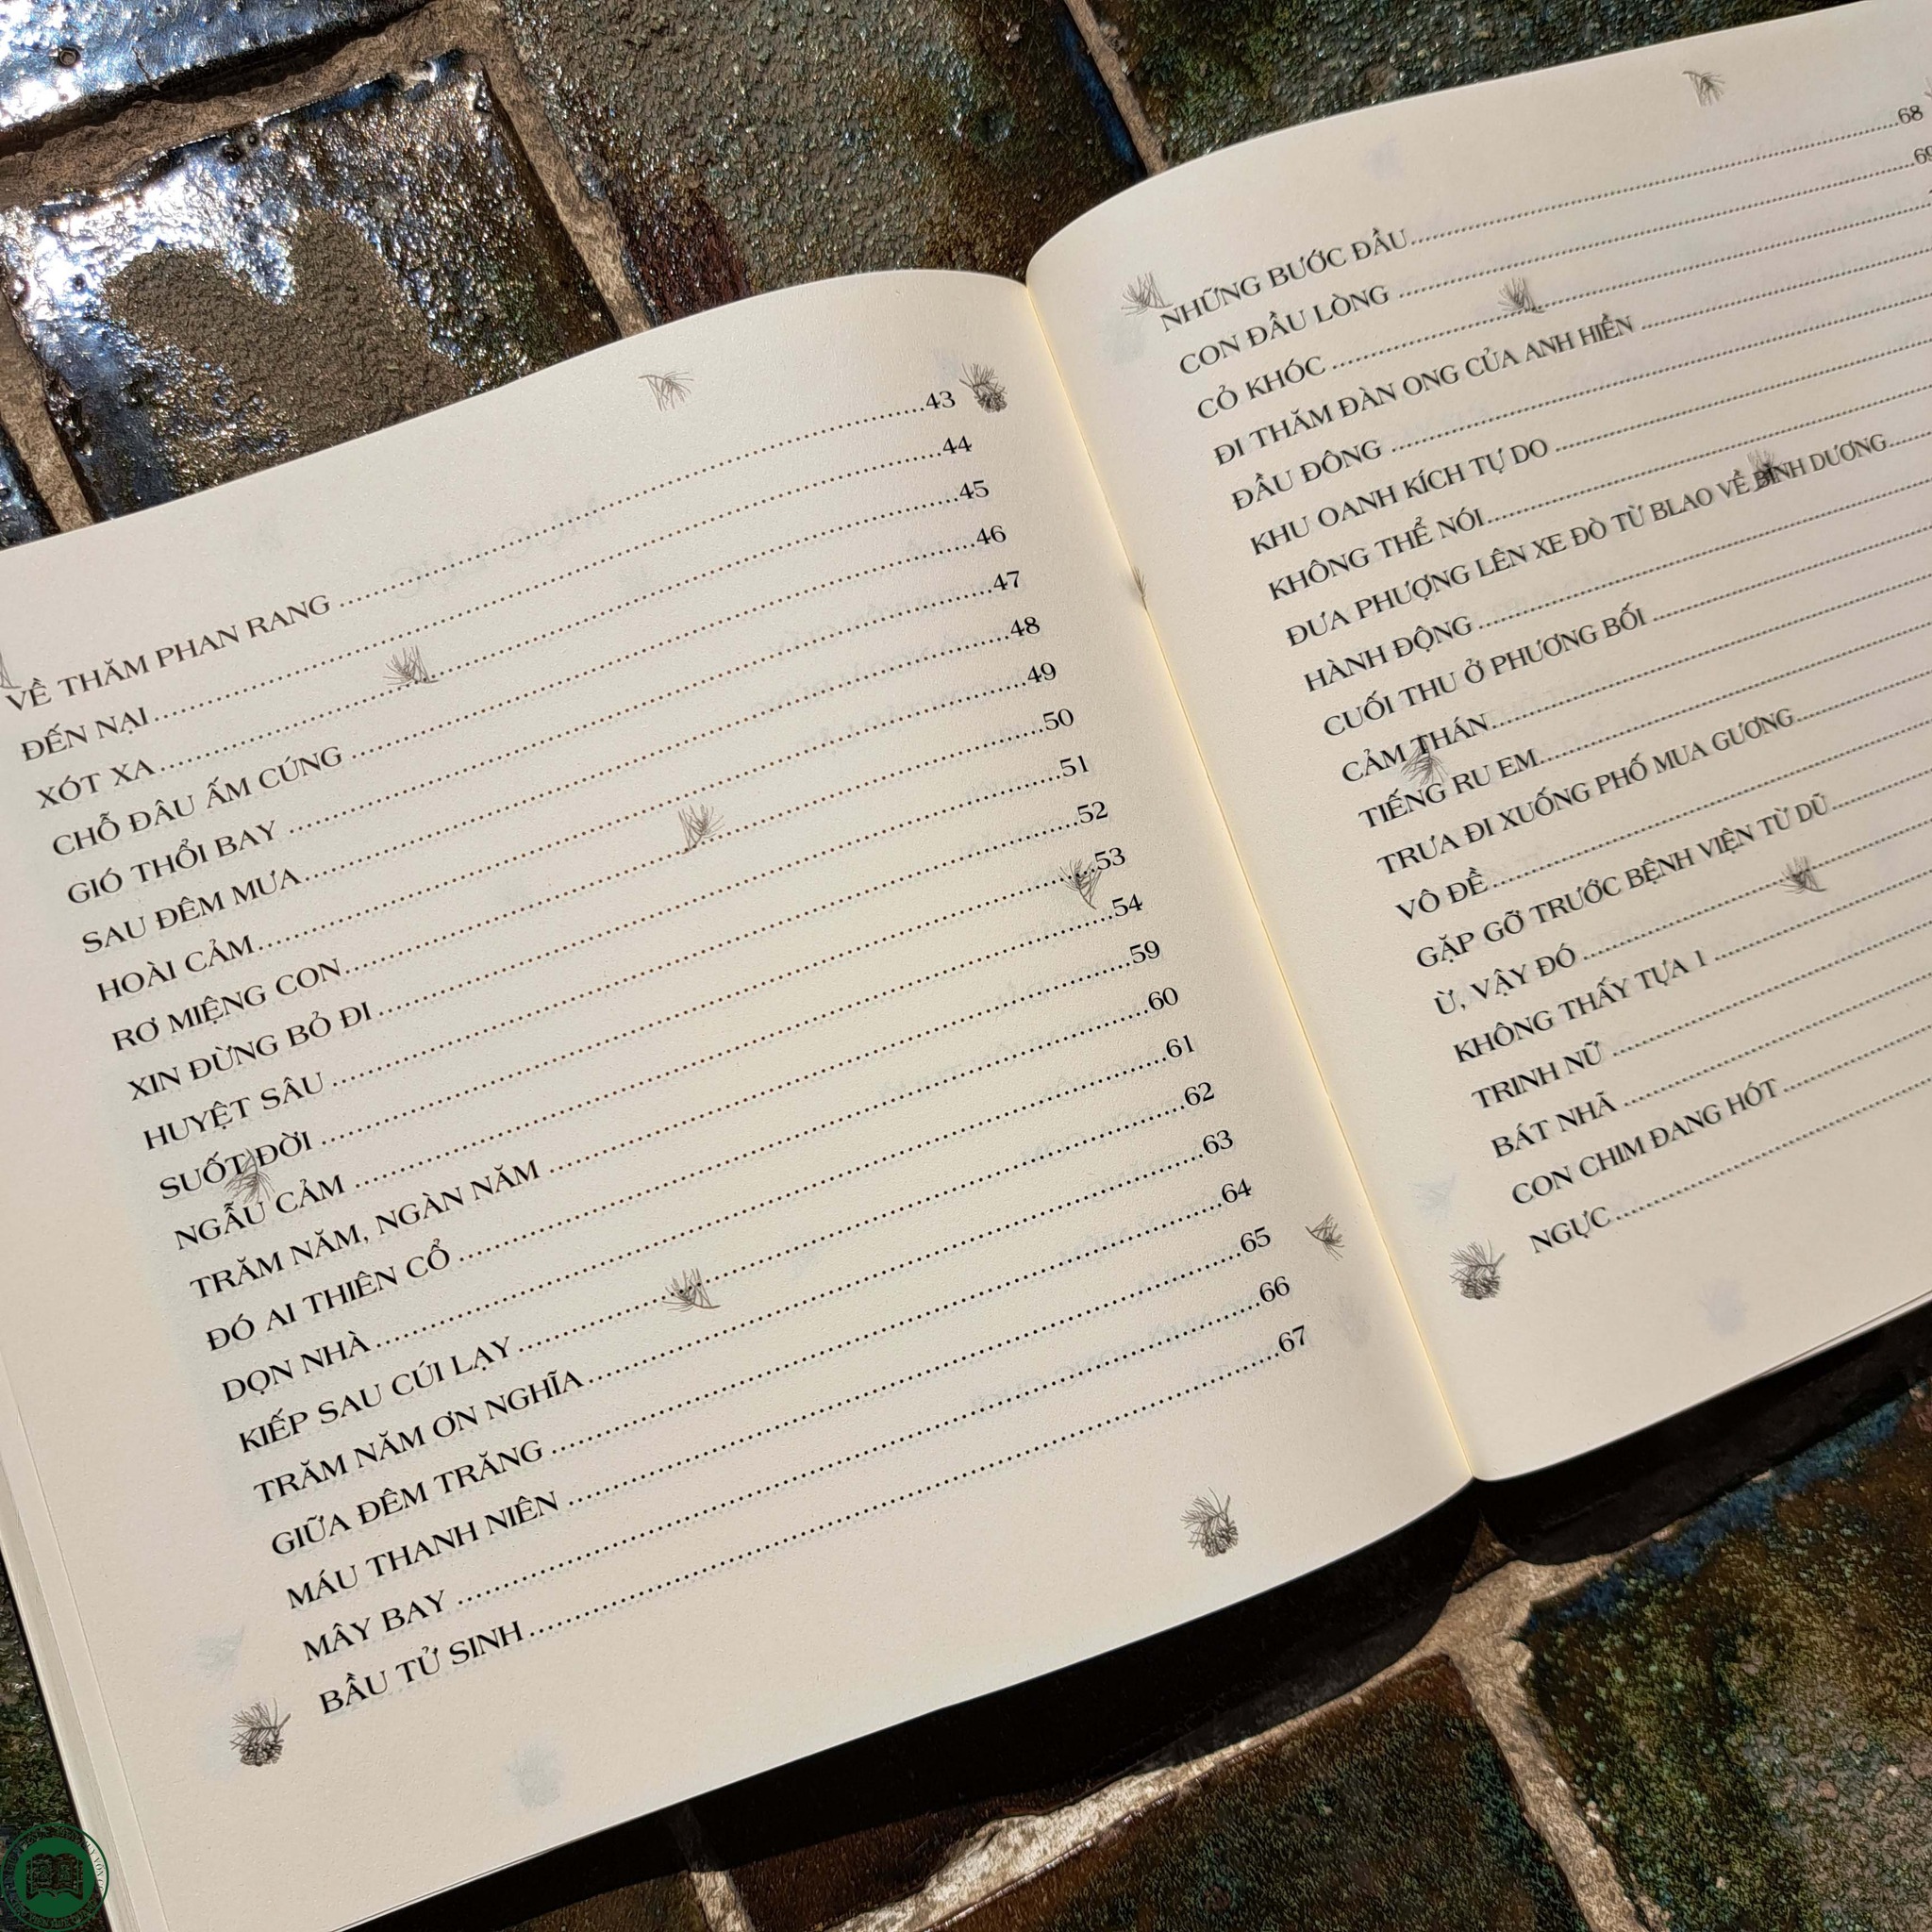 VỀ THĂM PHAN RANG ........ 43
ĐẾN NẠI ........ 44
XÓT XA ........ 45
CHỖ ĐÂU ẤM CÚNG ........ 46
GIÓ THỔI BAY ........ 47
SAU ĐÊM MƯA ........ 48
HOÀI CẢM ........ 49
RƠ MIỆNG CON ........ 50
XIN ĐỪNG BỎ ĐI ........ 51
HUYỆT SÂU ........ 52
SUỐT ĐỜI ........ 53
NGẪU CẢM ........ 54
TRĂM NĂM, NGÀN NĂM ........ 59
ĐÓ AI THIÊN CỔ ........ 60
DỌN NHÀ ........ 61
KIẾP SAU CÚI LẠY ........ 62
TRĂM NĂM ƠN NGHĨA ........ 63
GIỮA ĐÊM TRĂNG ........ 64
MÁU THANH NIÊN ........ 65
MÂY BAY ........ 66
BẦU TỬ SINH ........ 67
NHỮNG BƯỚC ĐẦU ........ 68
CON ĐẦU LÒNG ........ 69
CỎ KHÓC ........
ĐI THĂM ĐÀN ONG CỦA ANH HIỀN ........
ĐẦU ĐÔNG ........
KHU OANH KÍCH TỰ DO ........
KHÔNG THỂ NÓI ........
ĐƯA PHƯỢNG LÊN XE ĐÒ TỪ BLAO VỀ BÌNH DƯƠNG ........
HÀNH ĐỘNG ........
CUỐI THU Ở PHƯƠNG BỐI ........
CẢM THÁN ........
TIẾNG RU EM ........
TRƯA ĐI XUỐNG PHỐ MUA GƯƠNG ........
VÔ ĐỀ ........
GẶP GỠ TRƯỚC BỆNH VIỆN TỪ DŨ ........
Ừ, VẬY ĐÓ ........
KHÔNG THẤY TỰA 1 ........
TRINH NỮ ........
BÁT NHÃ ........
CON CHIM ĐANG HÓT ........
NGỰC ........